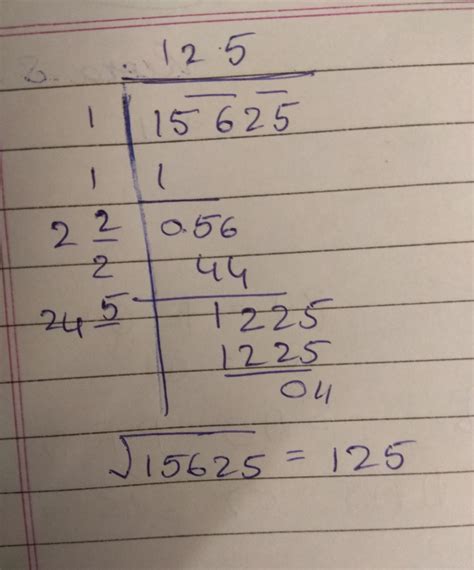 12.5
1 15625
1 1
2 2 0.56
2 44
24 5 1225
1225
04
√15625 = 125